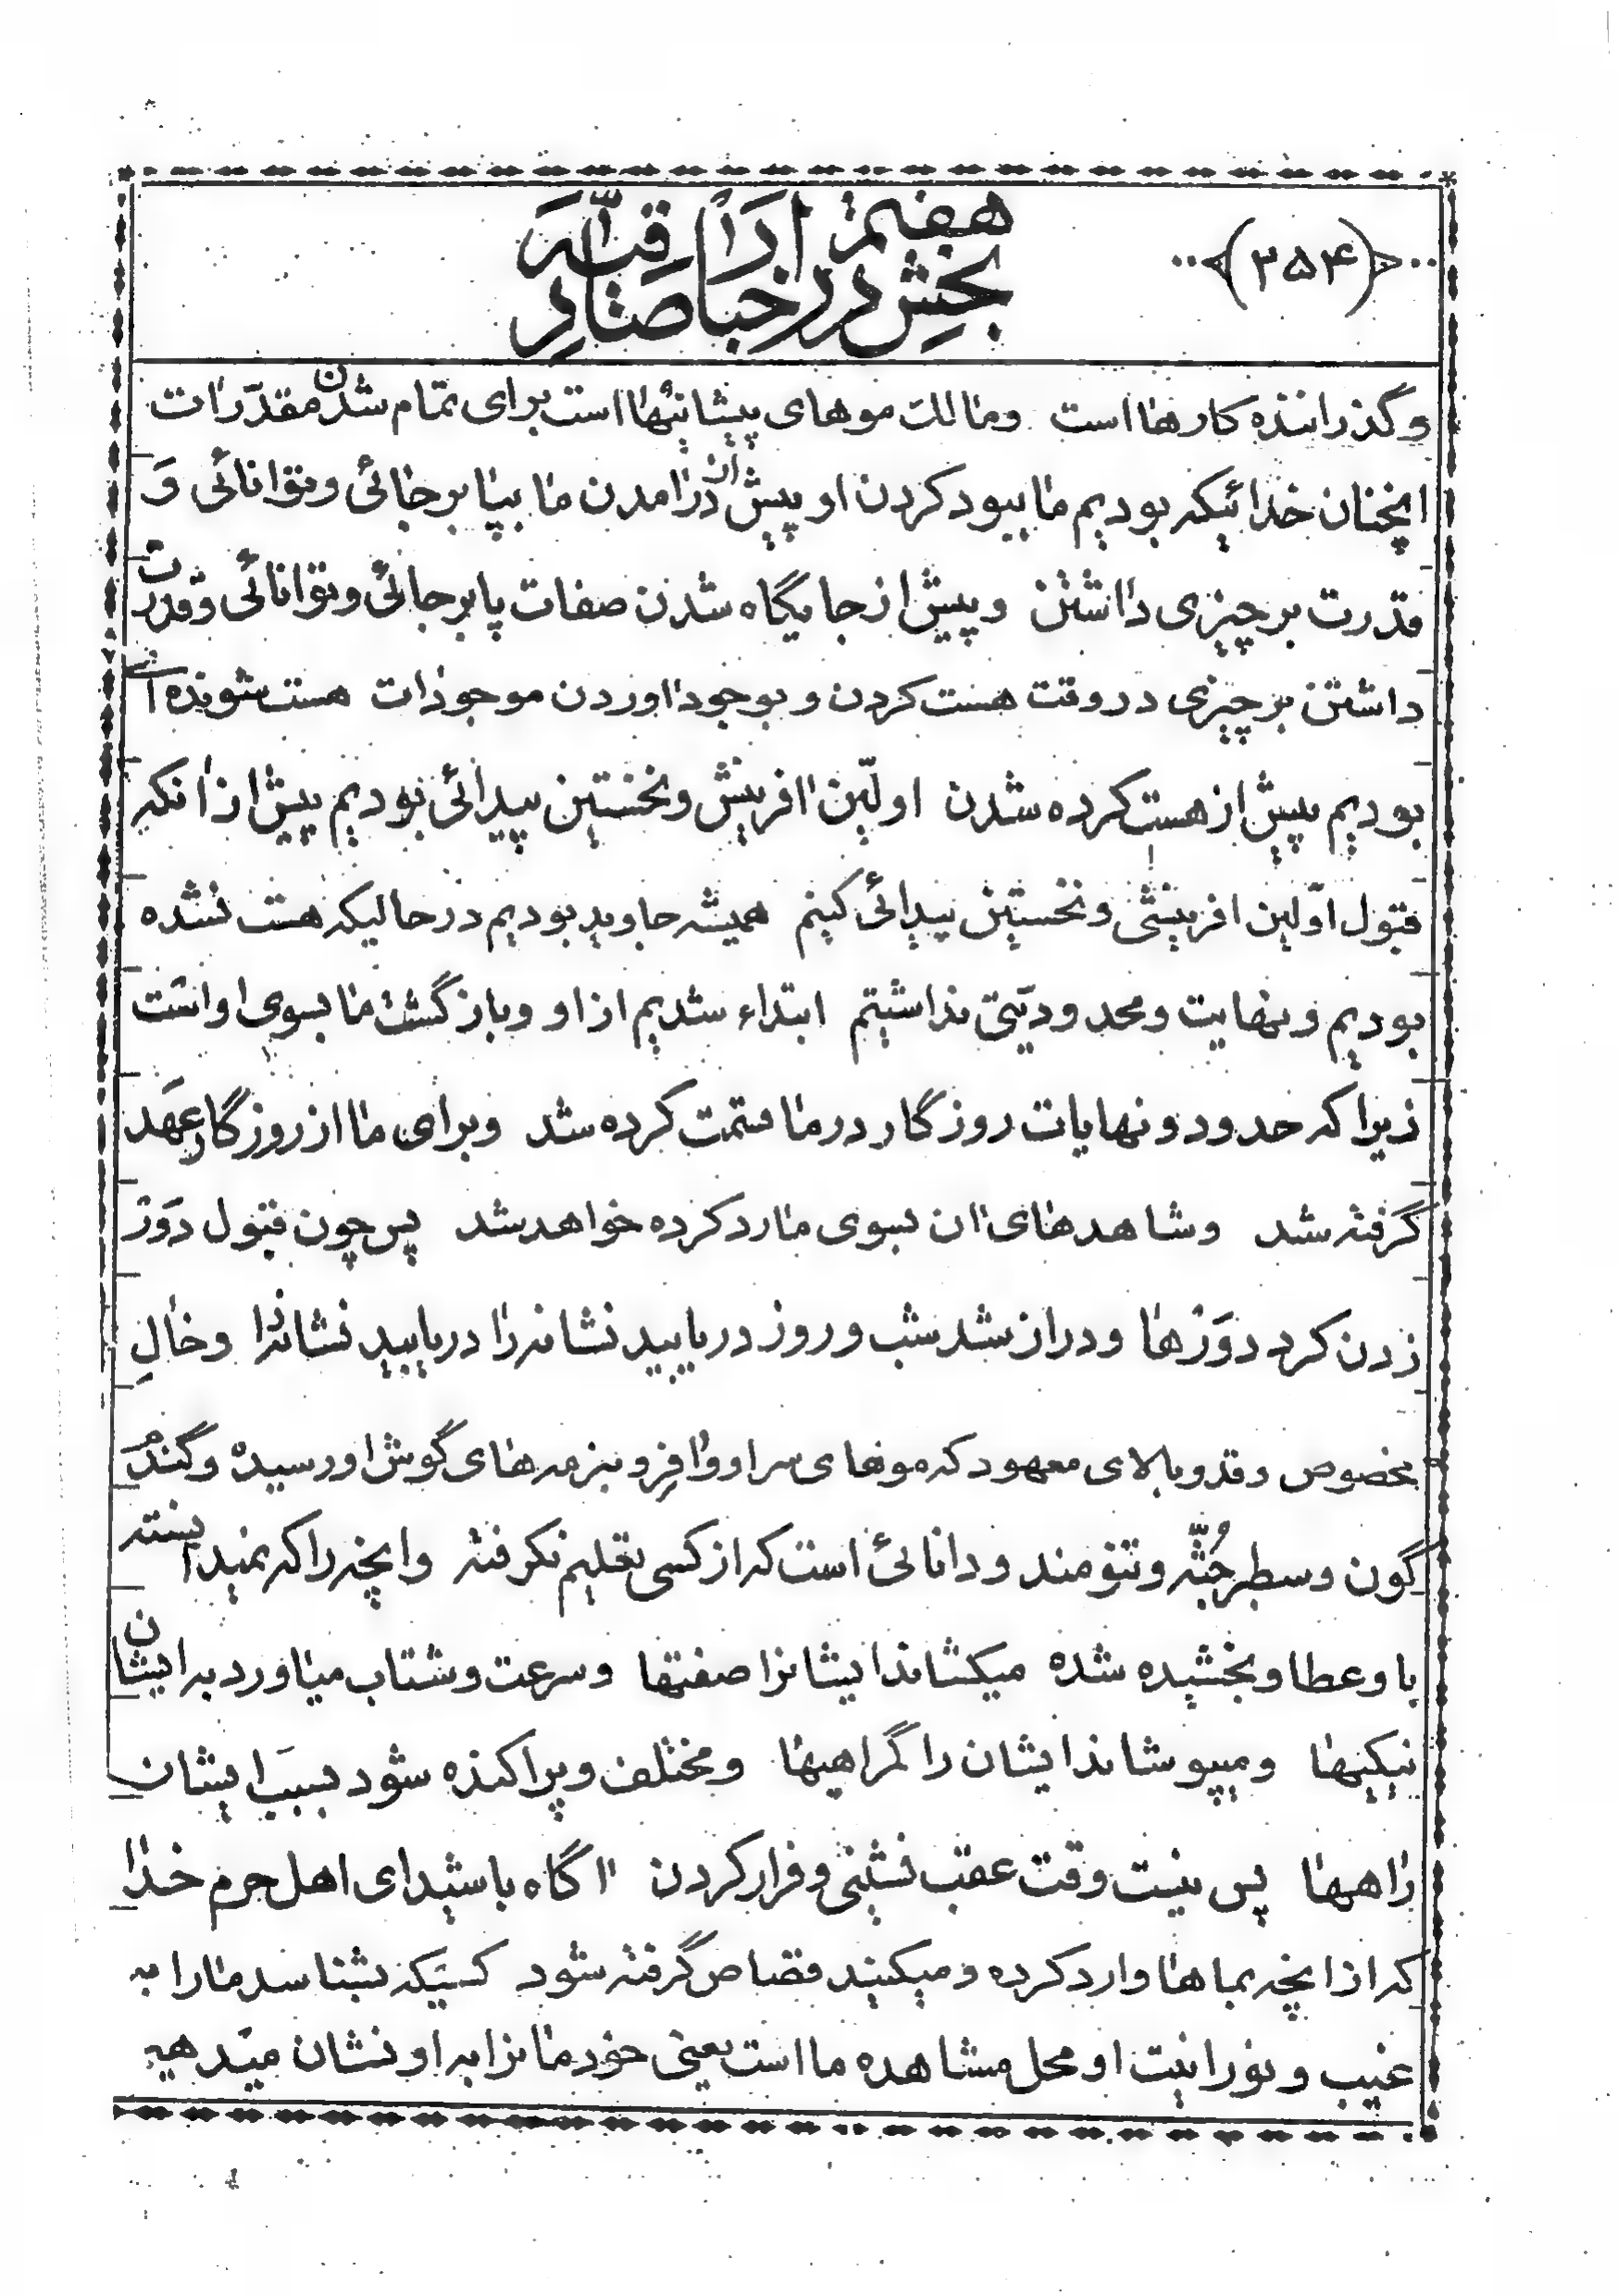 ﴿۲۵۴﴾
بخش هفتم در اخبار صادقیه
و گذراننده کارها است و مالک موهای پیشانیها است برای تمام شدن مقدّرات
انچنان خدائیکه بودیم ما ببود کردن او پیش از درامدن ما بپا بر جائی و توانائی و
قدرت بر چیزی داشتن و پیش از جایگاه شدن صفات پابرجائی و توانائی و قدرت
داشتن بر چیزی در وقت هست کردن و بوجود اوردن موجودات هست شونده
بودیم پیش از هست کرده شدن اولّین افرینش و نخستین پیدائی بودیم پیش از انکه
قبول اوّلین افرینشی و نخستین پیدائی کنیم همیشه جاوید بودیم در حالیکه هست نشده
بودیم و نهایت و محدودیّتی نداشتیم ابتداء شدیم از او و بازگشت ما بسوی او است
زیرا که حدود و نهایات روزگار در ما قسمت کرده شد و برای ما از روزگار عهد
گرفته شد و شاهدهای ان بسوی ما رد کرده خواهد شد پس چون قبول دَور
زدن کرد دَورها و دراز شد شب و روز دریابید نشانه را دریابید نشانه را و خالِ
مخصوص و قد و بالای معهود که موهای سر او وافر و بنرمه‌های گوش او رسیده و گندم
گون و سطبر جُثّه و تنومند و دانائی است که از کسی تعلیم نگرفته و انچه را که نمیدانسته
باو عطا و بخشیده شده میکشاند ایشانرا صفتها و سرعت و شتاب میاورد به ایشان
نیکیها و میپوشاند ایشان را گمراهیها و مختلف و پراکنده شود بسبب ایشان
راهها پس نیست وقت عقب نشینی و فرار کردن اگاه باشید ای اهل حرم خدا
که از انچه بماها وارد کرده و میکنید قصاص گرفته شود کسیکه بشناسد ما را به
غیب و نورانیت او محل مشاهده ما است یعنی خودمانرا به او نشان میدهیم